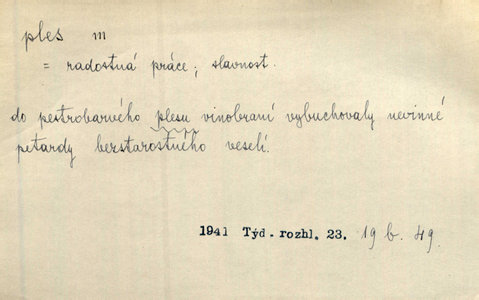 ples m
= radostná práce; slavnost.
do pestrobarvého plesu vinobraní vybuchovaly nevinné
petardy bezstarostného veselí.
1941 Týd. rozhl. 23. 19 b. 49.